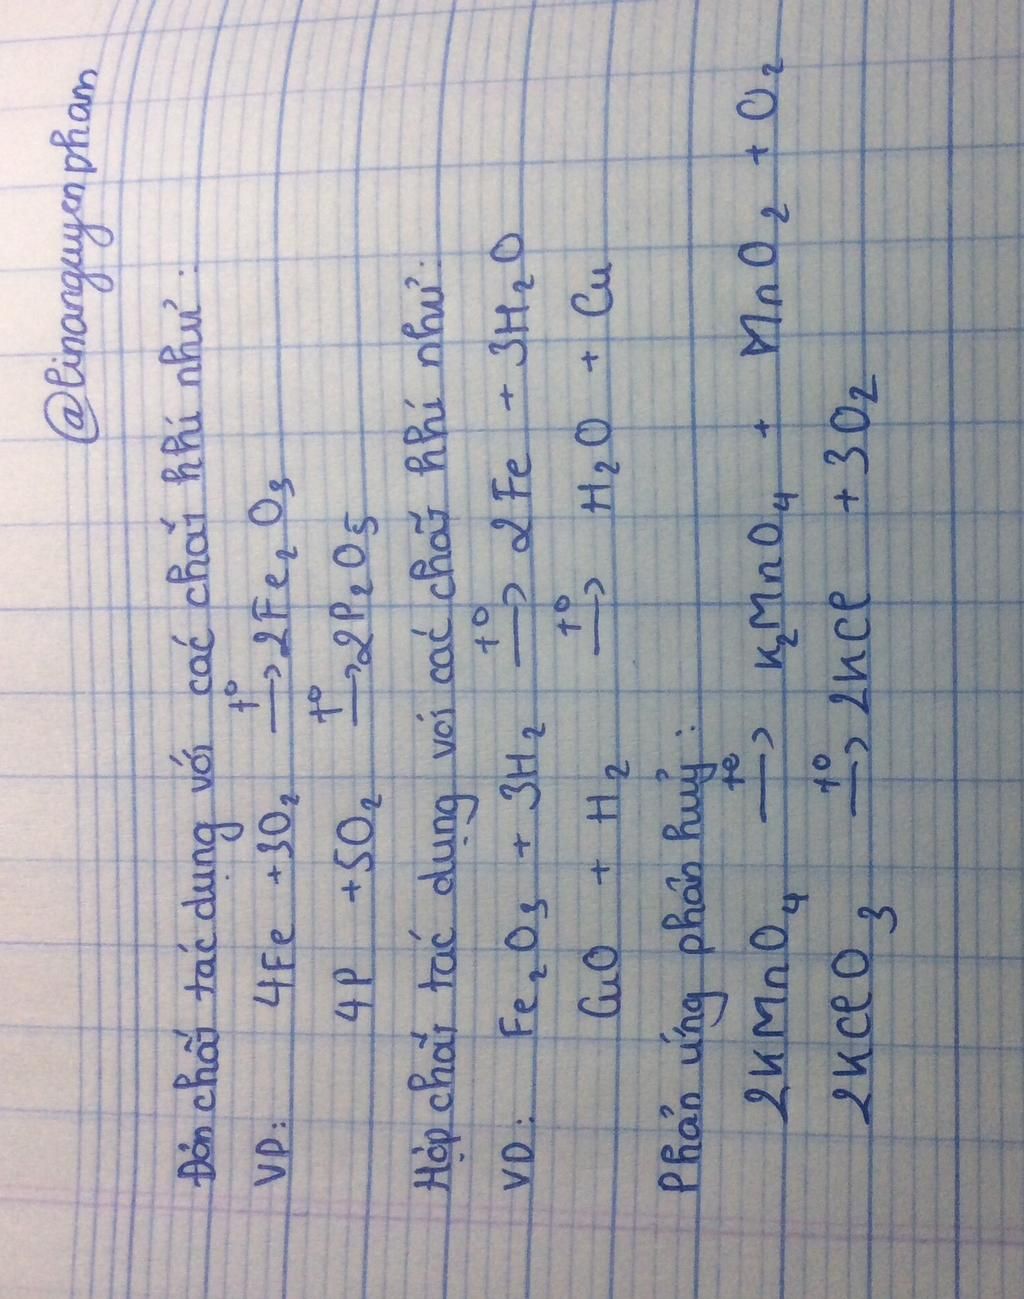 @linanguyenpham
Đơn chất tác dụng với các chất khí như:
VD: 4Fe + 3O₂ —t°→ 2Fe₂O₃
4P + 5O₂ —t°→ 2P₂O₅
Hợp chất tác dụng với các chất khí như:
VD: Fe₂O₃ + 3H₂ —t°→ 2Fe + 3H₂O
CuO + H₂ —t°→ H₂O + Cu
Phản ứng phân huỷ:
2KMnO₄ —t°→ K₂MnO₄ + MnO₂ + O₂
2KClO₃ —t°→ 2KCl + 3O₂